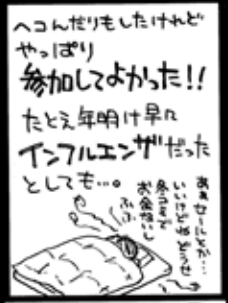 ヘコんだりもしたけれど
やっぱり
参加してよかった!!
たとえ年明け早々
インフルエンザだった
としても…。
あぁセールとか…
いいけどねどうせ
冬コミで
お金ないし
ふふ